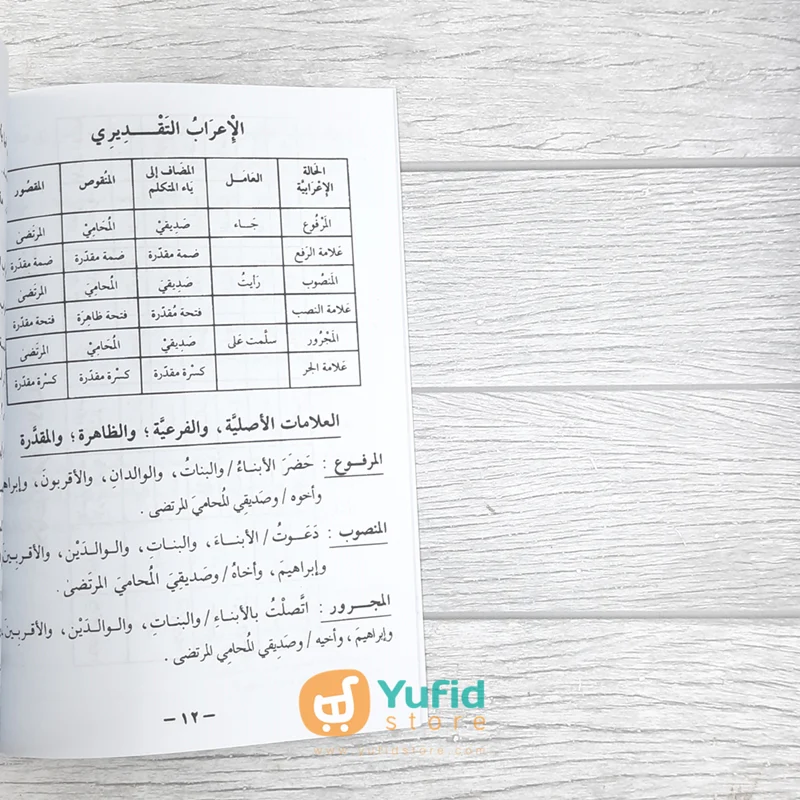 الْإِعرَابُ التَقْـــدِيرِي
الحَالة الإِعْرَابيَّة العَامَـل المضَاف إلى يَاء المتكلم المنْقوص المقصُور
المَرْفُوع جَـاء صَديقيْ المُحَاميْ المرتَضى
عَلامة الرَفع ضمة مقدّرة ضمة مقدّرة ضمة مقدّرة
المنْصُوب رَأيتُ صَديقيْ المُحاميَ المرتَضى
عَلامة النصب فتحة مُقدّرة فتحة ظاهِرَة فتحة مقدّرة
المَجْرُور سلّمت عَلى صَديقيْ المُحَاميْ المرتَضى
عَلامة الجر كسْرة مقدّرة كسْرة مقدّرة كسْرة مقدّرة
العلامات الأصليَّة ، والفرعيَّة ؛ والظاهرة ؛ والمقدَّرة
المرفـوع : حَضَرَ الأبنـاءُ / والبناتُ ، والوالدانِ ، والأقربونَ ،
وأخوه / وصَديقِي المُحاميْ المرتضى .
المنصوب : دَعَـوتُ / الأبنـاءَ ، والبنـاتِ ، والـوالـدَيْن ، والأقـربِينَ
وإبراهيمَ ، وأخاهُ / وصَديقِيَ المُحاميَ المرتَضىٰ .
المجـرور : اتَّصلْتُ بالأبناءِ / والبنـاتِ ، والـوالـدَيْن ، والأقربِينَ
وإبراهيمَ ، وأخيه / وصَديقي المُحامِي المرتضى .
– ١٢ –
Yufid
store
www.yufidstore.com